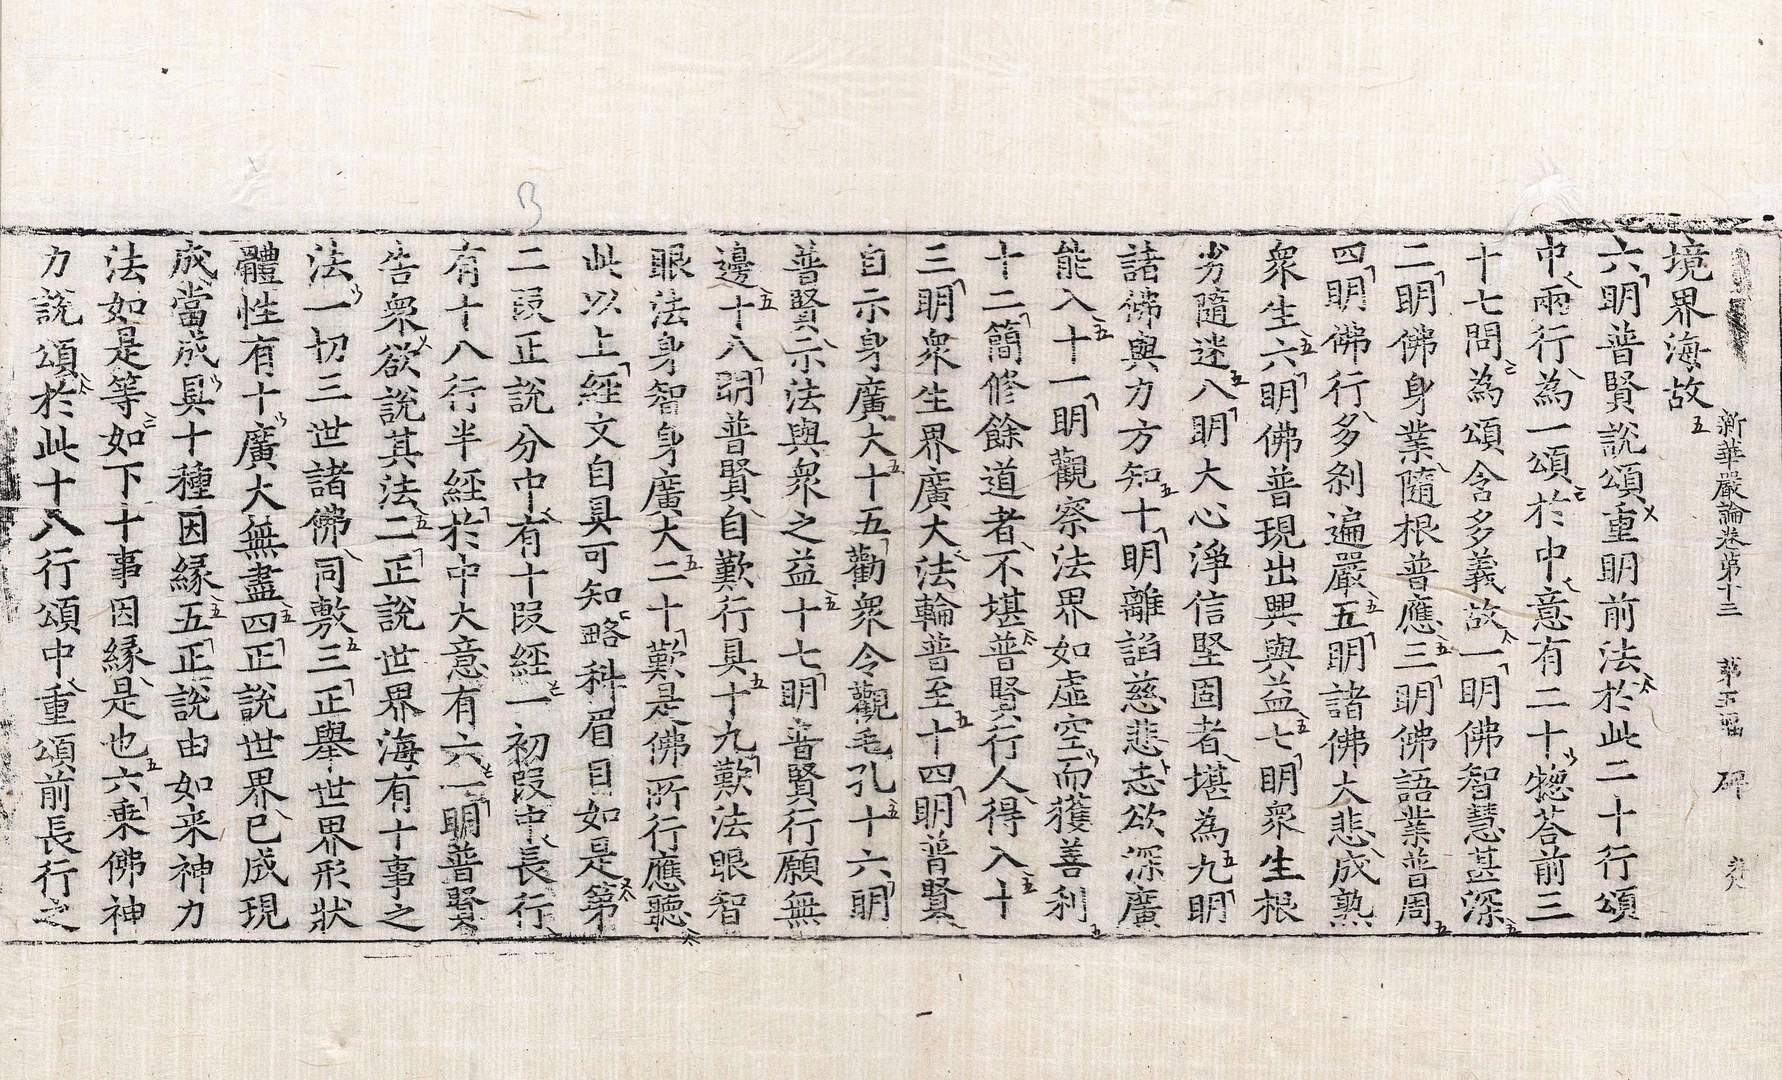 新華嚴論卷第十三　第五幅
境界海故
六明普賢說頌重明前法於此二十行頌
中兩行為一頌於中意有二十惣荅前三
十七問為頌含多義故一明佛智慧甚深
二明佛身業隨根普應三明佛語業普周
四明佛行多剎遍嚴五明諸佛大悲成熟
衆生六明佛普現出興與益七明衆生根
劣隨迷八明大心淨信堅固者堪為九明
諸佛與力方知十明離諂慈悲志欲深廣
能入十一明觀察法界如虛空而獲善利
十二簡修餘道者不堪普賢行人得入十
三明衆生界廣大法輪普至十四明普賢
自示身廣大十五勸衆令觀毛孔十六明
普賢示法與衆之益十七明普賢行願無
邊十八明普賢自歎行具十九歎法眼智
眼法身智身廣大二十歎是佛所行應聽
此以上經文自具可知略科眉目如是第
二叚正說分中有十叚經一初叚中長行
有十八行半經於中大意有六一明普賢
告衆欲說其法二正說世界海有十事之
法一切三世諸佛同敷三正舉世界形狀
體性有十廣大無盡四正說世界已成現
成當成具十種因緣五正說由如来神力
法如是等如下十事因緣是也六乗佛神
力說頌於此十八行頌中重頌前長行之